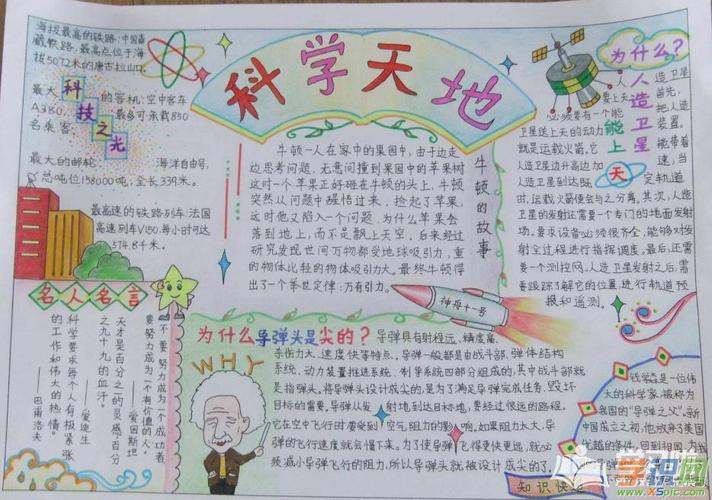 科学天地
海拔最高的铁路:中国青
藏铁路,最高点位于海
拔5072米的唐古拉山口.
科技之光
最大的客机:空中客车
A380.最多可承载850
名乘客
最大的邮轮 海洋自由号,
总吨位158000吨,全长339米.
最高速的铁路列车:法国
高速列车V150,每小时可达
574.8千米.
牛顿的故事
牛顿一人在家中的果园中,由于边走
边思考问题,无意间撞到果园中的苹果树
这时一个苹果正好砸在牛顿的头上,牛顿
突然从问题中醒悟过来,捡起了苹果,
这时他又陷入一个问题,为什么苹果会
落到地上,而不是飘上天空.后来经过
研究发现世间万物都受地球吸引力,重
的物体比轻的物体吸引力大.最终牛顿得
出了一个举世定律:万有引力.
神舟十一号
为什么?
人造卫星能上天
人造卫星
要上天,首先,
必须要有一个能把人造
卫星送上天的动力装置.
就是运载火箭,它能带着
人造卫星边升高边加速,当
人造卫星到达既定轨道
时,运载火箭便会与之分离.其次,人造
卫星的发射还需要一个专门的地面发射
场,要求设备必须很齐全,能够对发
射全过程进行指挥调度.最后,还需
要一个测控网,人造卫星发射之后,需
要跟踪了解它的位置,进行轨道预
报和遥测.
名人名言
不要努力成为一个成功者
要努力成为一个有价值的人.
——爱因斯坦
天才是百分之一的灵感,百分
之九十九的血汗.
——爱迪生
科学要求每个人有极紧张
的工作和伟大的热情.
——巴甫洛夫
为什么导弹头是尖的?
WHY
导弹具有射程远、精度高、
杀伤力大、速度快等特点,导弹一般都是由战斗部、弹体结构
系统、动力装置推进系统、制导系统四部分组成的,其中战斗部就
是指弹头.将导弹头设计成尖的,是为了满足导弹完成任务、毁坏
目标的需要.导弹从发射地,到达目标地,要经过很远的路程.
它在空中飞行时要受到空气阻力的影响.如果阻力太大,导
弹的飞行速度就会慢下来.为了使导弹飞得更快更远,就必
须减小导弹飞行的阻力,所以导弹头就被设计成尖的了.
钱学森是一位伟
大的科学家,被称为
我国的“导弹之父”.新中
国成立之初,他放弃了美国
优越的条件,回到祖国,为我
知识快
学识网
www.xspic.com